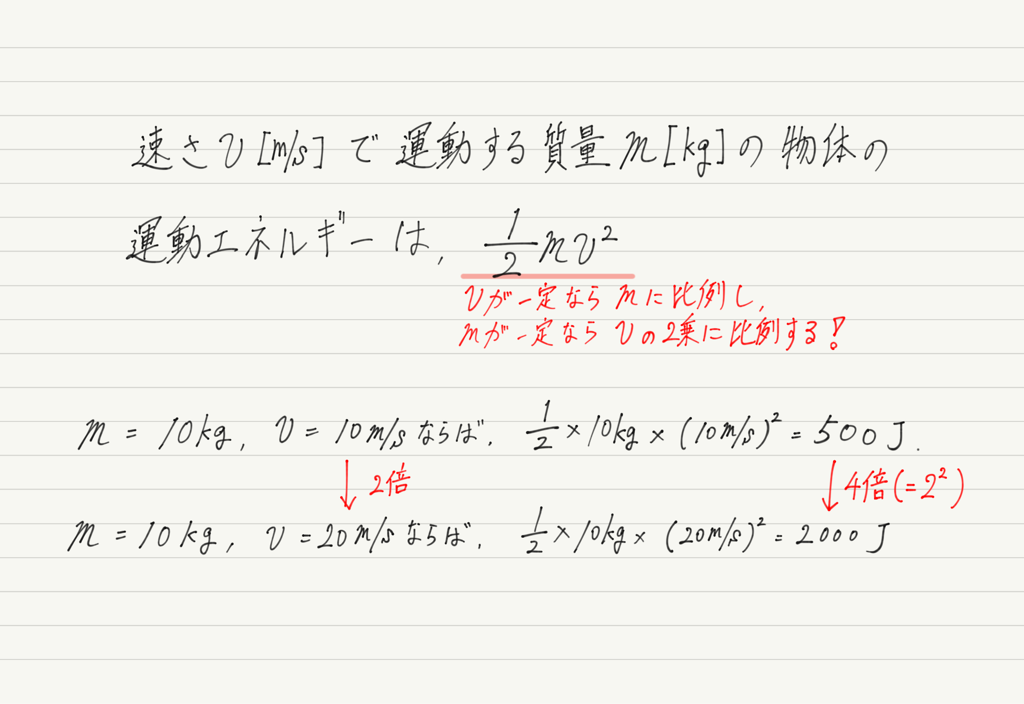 速さ v [m/s] で 運動する 質量 m [kg] の 物体の
運動エネルギーは, 1/2 mv²
vが一定なら mに比例し,
mが一定なら vの2乗に比例する!
m = 10kg, v = 10m/sならば, 1/2 × 10kg × (10m/s)² = 500J.
↓ 2倍 ↓ 4倍(=2²)
m = 10kg, v = 20m/sならば, 1/2 × 10kg × (20m/s)² = 2000J